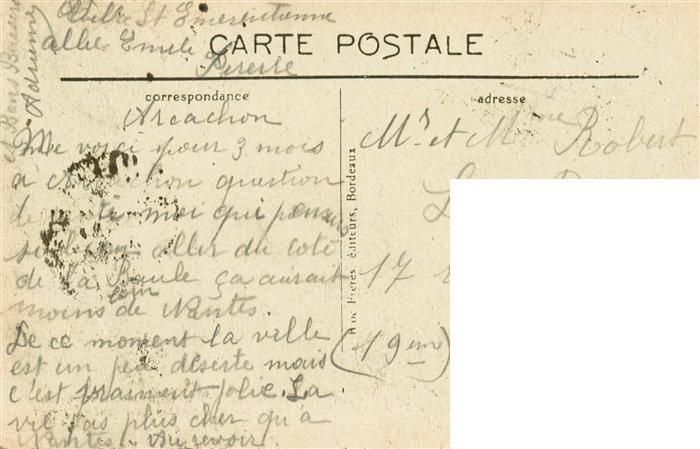 Villa St Emerentienne
allée Emile
Pereire
CARTE POSTALE
correspondance
adresse
Arcachon
Me voici pour 3 mois
a Arcachon question
de santé moi qui pensais
si bien aller du coté
de la Baule ça aurait
moins loin de Nantes.
De ce moment la ville
est un peu déserte mais
c'est vraiment jolie. La
vie pas plus cher qu'a
Nantes. Au revoir
et Bons Baisers
Adrienne
Mr et Mme Robert
17
(19em)
éditeurs, Bordeaux